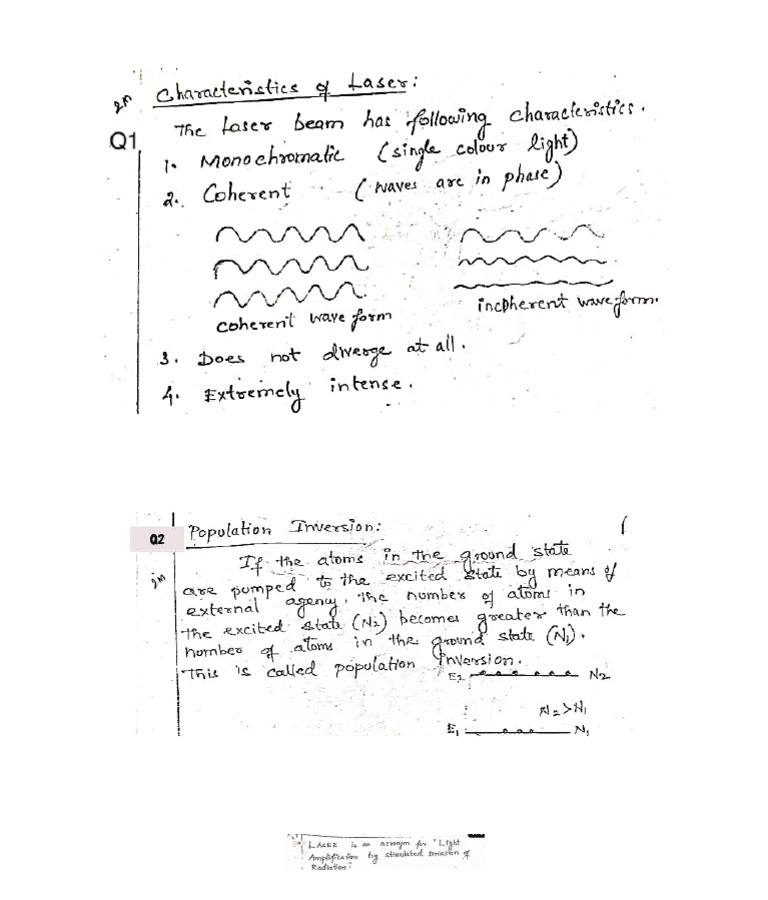 Characteristics of Laser:
Q1
The Laser beam has following characteristics.
1. Monochromatic (single colour light)
2. Coherent (waves are in phase)
coherent wave form
incoherent wave form.
3. Does not diverge at all.
4. Extremely intense.
Population Inversion:
Q2
If the atoms in the ground state
are pumped to the excited state by means of
external agency, the number of atoms in
the excited state (N2) becomes greater than the
number of atoms in the ground state (N1).
This is called population inversion.
E2 N2
N2 > N1
E1 N1
LASER is an acronym for "Light
Amplification by Stimulated Emission of
Radiation"